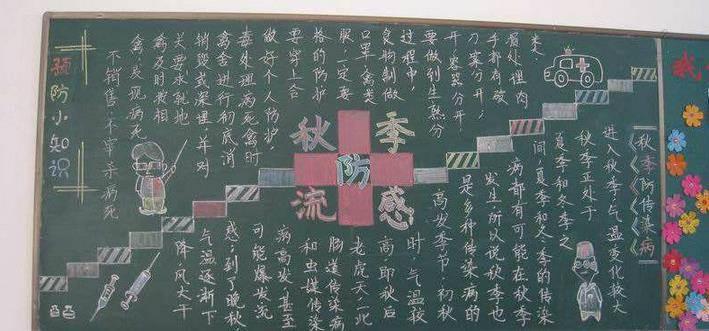 秋季防传染病
进入秋季,气温变化较大
秋季正处于
夏季和冬季之
间,夏季和冬季的传染
病都有可能在秋季
发生,所以说秋季也
是多种传染病的
高发季节。初秋
时,气温较
高,即秋后
老虎天,此
肠道传染病
和虫媒传染
病高发,甚至
可能爆发流
感;到了晚秋
气温逐渐下
降,风大干
秋季
防
流感
类。
损处理肉
手部有破
刀菜分开,
开容器分开,
要做到生熟分
过程中,
食物制做
口罩,禽类
服,一定要
格的防护
要穿上合
做好个人防护,
毒处理病死禽时
禽舍进行彻底消
销毁或深埋,并对
关要求就地
禽及时按相
禽,发现病死
不销售、不宰杀病死
预防小知识